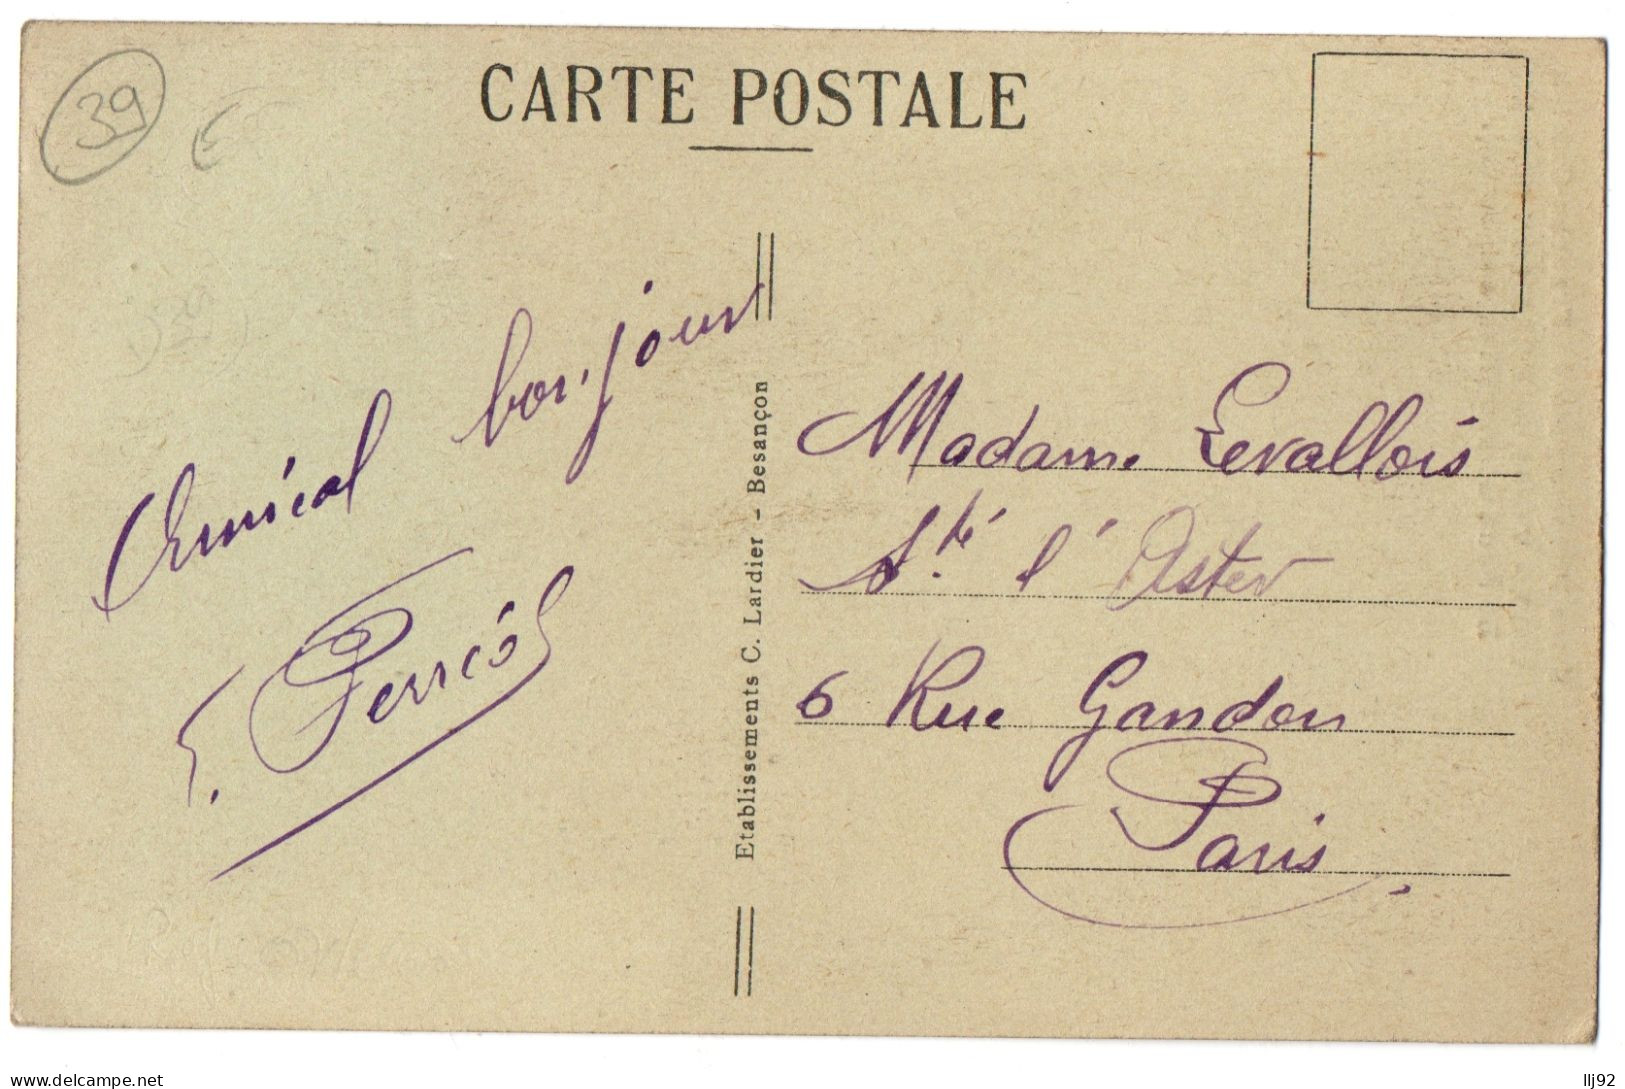 39
CARTE POSTALE
Amical bonjour
Etablissements C. Lardier - Besançon
Madame Levallois
Sté l'Aster
6 Rue Gandon
Paris
delcampe.net
llj92